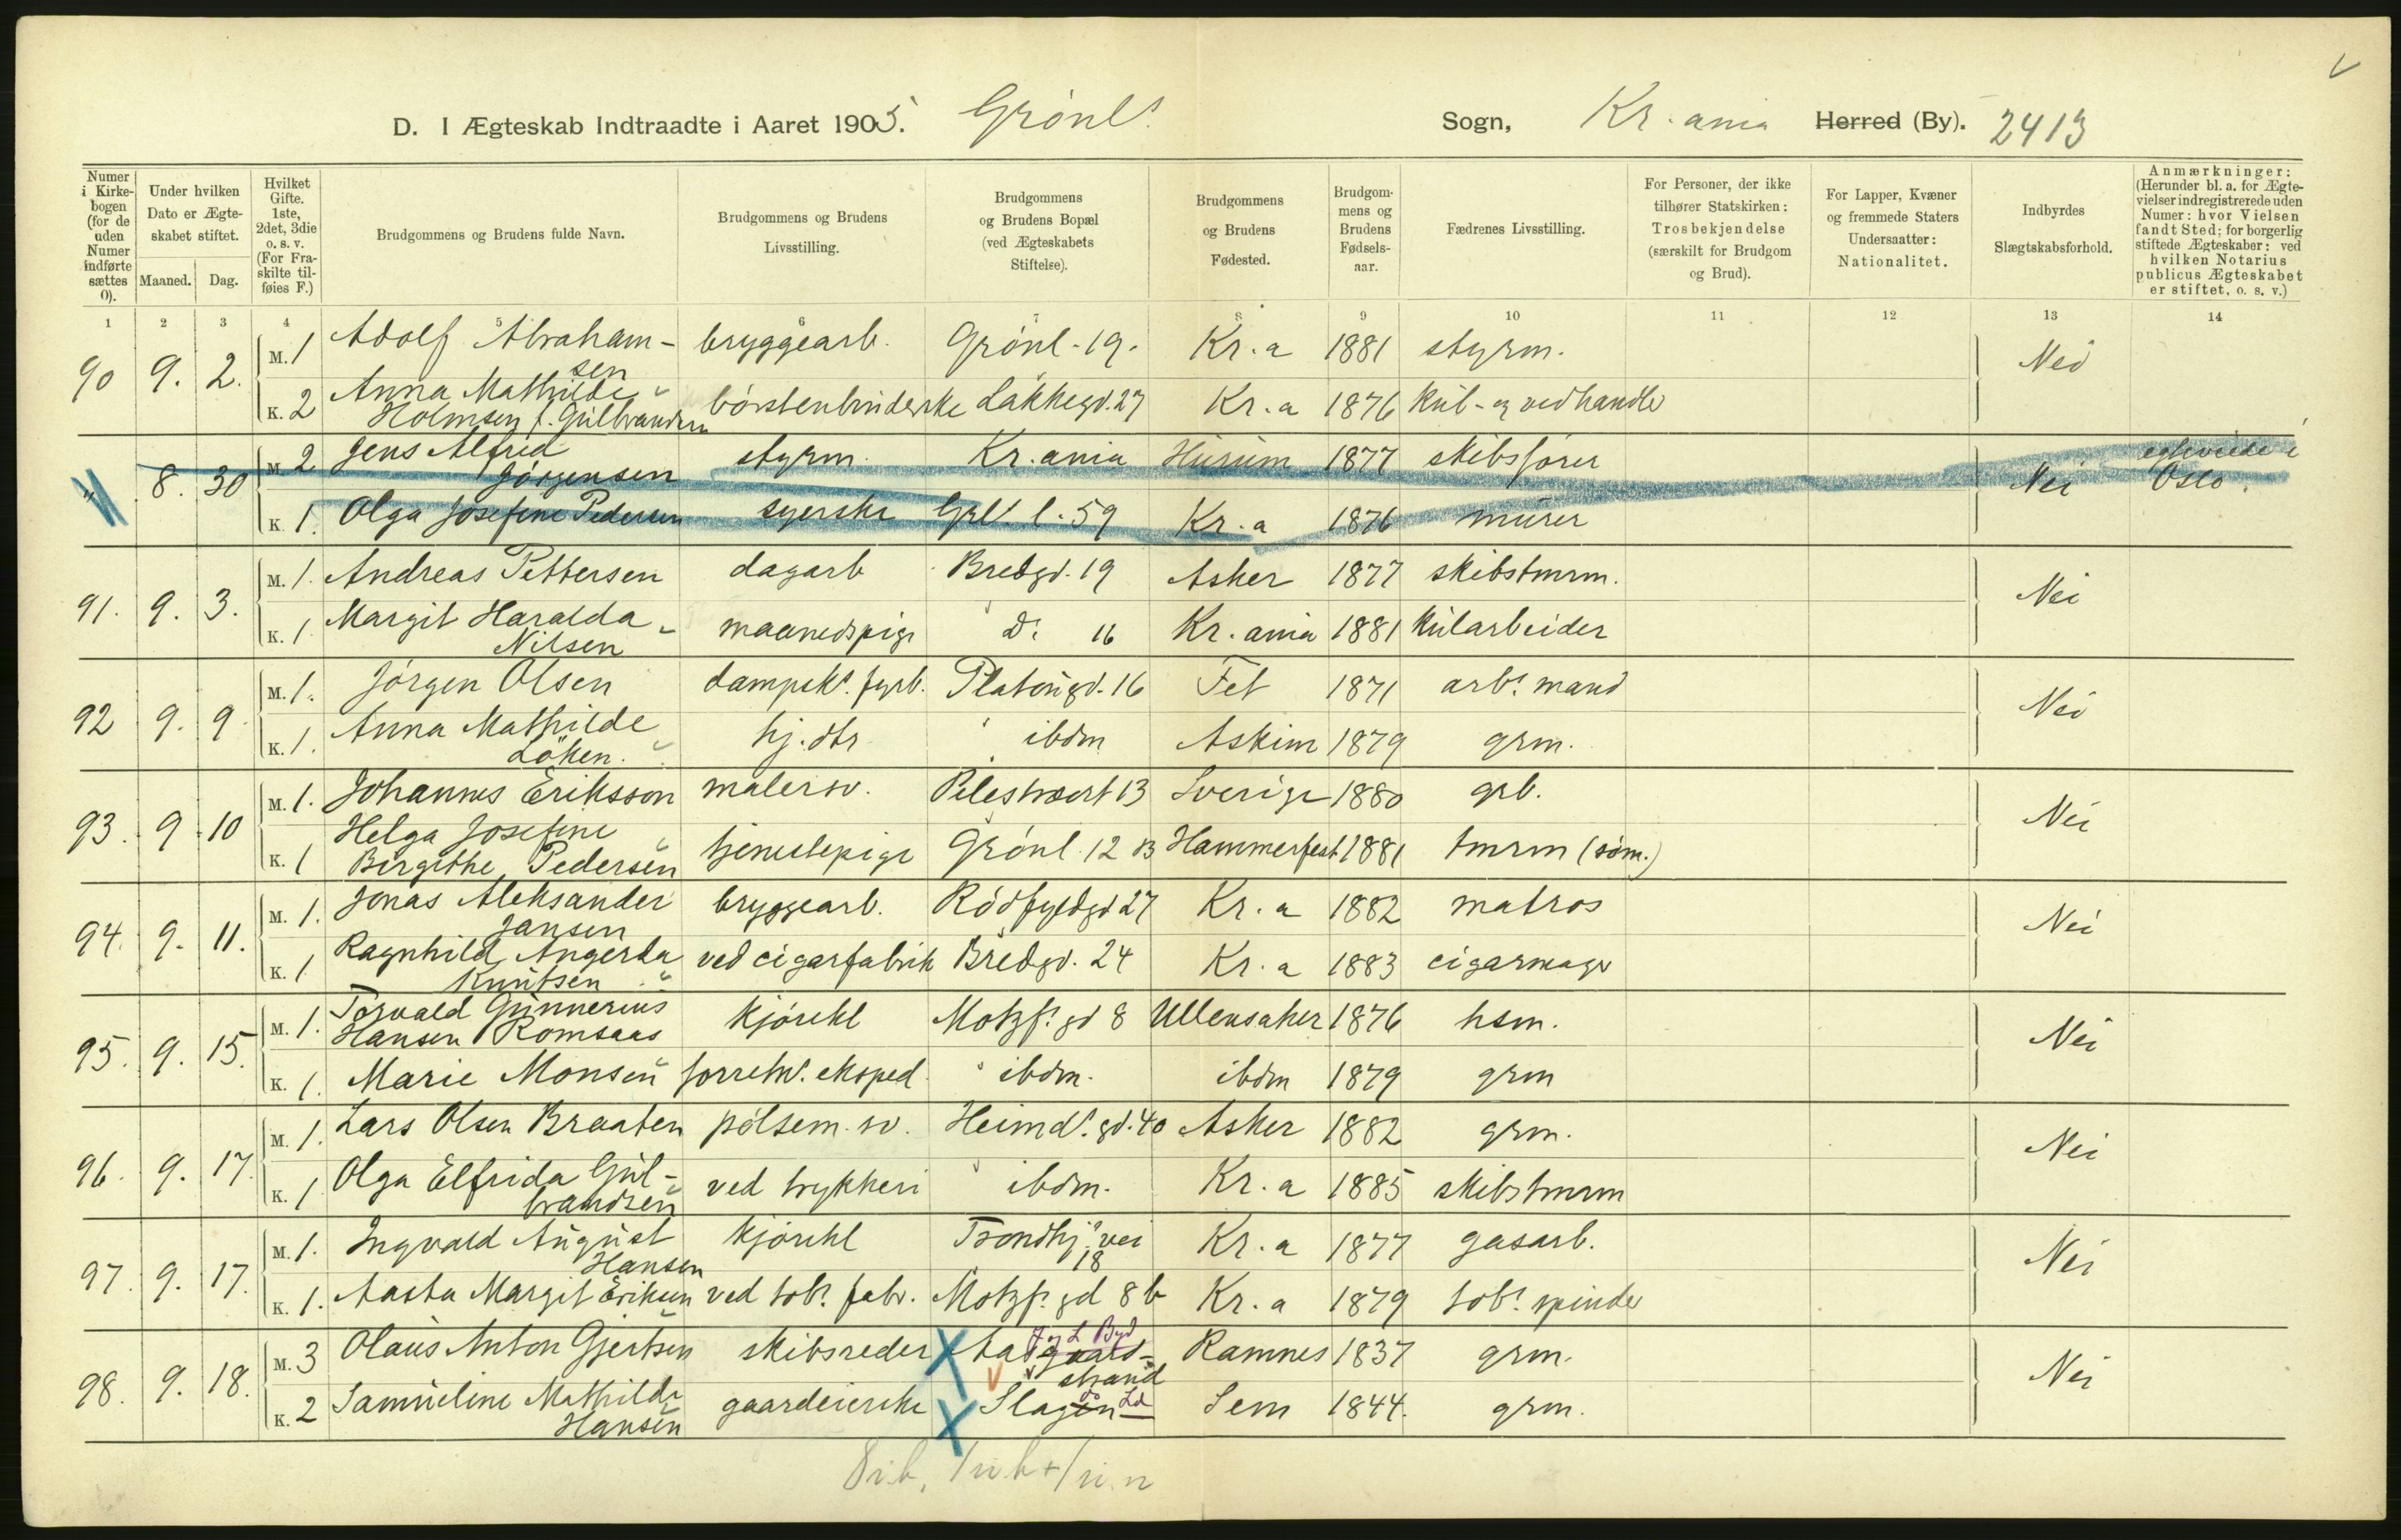 D. I Ægteskab Indtraadte i Aaret 1905. Grönls Sogn, Kr.ania Herred (By). 2413
Numer i Kirkebogen (for de uden Numer indførte sættes 0).
Under hvilken Dato er Ægteskabet stiftet.
Maaned. Dag.
Hvilket Gifte. 1ste, 2det, 3die o. s. v. (For Fraskilte tilføies F.)
Brudgommens og Brudens fulde Navn.
Brudgommens og Brudens Livsstilling.
Brudgommens og Brudens Bopæl (ved Ægteskabets Stiftelse).
Brudgommens og Brudens Fødested.
Brudgommens og Brudens Fødselsaar.
Fædrenes Livsstilling.
For Personer, der ikke tilhører Statskirken: Trosbekjendelse (særskilt for Brudgom og Brud).
For Lapper, Kvæner og fremmede Staters Undersaatter: Nationalitet.
Indbyrdes Slægtskabsforhold.
Anmærkninger: (Herunder bl. a. for Ægtevielser indregistrerede uden Numer: hvor Vielsen fandt Sted; for borgerlig stiftede Ægteskaber: ved hvilken Notarius publicus Ægteskabet er stiftet, o. s. v.)
1 2 3 4 5 6 7 8 9 10 11 12 13 14
90 9. 2. M. 1 Adolf Abrahamsen bryggearb. Grönl. 19. Kr.a 1881 styrm. Nei
K. 2 Anna Mathilde Holmsen f. Gülbrandsen börstenbinderske Lakkegd. 27 Kr.a 1876 kül- og vedhandler
" 8. 30 M. 2 Jens Alfred Jörgensen styrm. Kr.ania Hürüm 1877 skibsförer Nei Oslo.
K. 1. Olga Josefine Pedersen syerske Grls l. 59 Kr.a 1876 mürer
91. 9. 3. M. 1. Andreas Pettersen dagarb Bredgd. 19 Asker 1877 skibstmrm. Nei
K. 1. Margit Haralda Nilsen maanedspige Do 16 Kr.ania 1881 külarbeider
92 9. 9 M. 1. Jörgen Olsen dampsks. fyrb. Platoügd. 16 Fet 1871 arbs mand Nei
K. 1. Anna Mathilde Löken. hj. dtr ibdm Askim 1879 grm.
93. 9 10 M. 1. Johannes Eriksson malersv. Pilestræt 13 Sverige 1880 grb. Nei
K. 1 Helga Josefine Birgithe Pedersen tjenestepige Grönl. 12 B Hammerfest 1881 tmrm (söm.)
94. 9. 11. M. 1. Jonas Aleksander Jansen bryggearb. Rödfyldgd 27 Kr.a 1882 matros Nei
K. 1 Ragnhild Angerda Knütsen ved cigarfabrik Bredgd. 24 Kr.a 1883 cigarmager
95. 9. 15. M. 1. Torvald Günnerius Hansen Romsaas kjörekl Motzfs. gd 8 Ullensaker 1876 hsm. Nei
K. 1. Marie Monsen forretns. eksped. ibdm. ibdm 1879 grm
96. 9. 17. M. 1. Lars Olsen Braaten pölsem. sv. Heimds. gd. 40 Asker 1882 grm. Nei
K. 1 Olga Elfrida Gülbrandsen ved trykkeri ibdm. Kr.a 1885 skibstmrm
97. 9. 17. M. 1. Ingvald Aügüst Hansen kjörekl Trondhj. vei 18 Kr.a 1877 gasarb. Nei
K. 1. Aasta Margit Eriksen ved tobs. fabr. Motzfs. gd 8b Kr.a 1879 tobs. spinder
98. 9. 18. M. 3 Olaüs Anton Gjertsen skibsreder Aasgaardstrand Ramnes 1837 grm. Nei
K. 2 Samüeline Mathilde Hansen gaardeierske Slagen do Ld Sem 1844. grm.